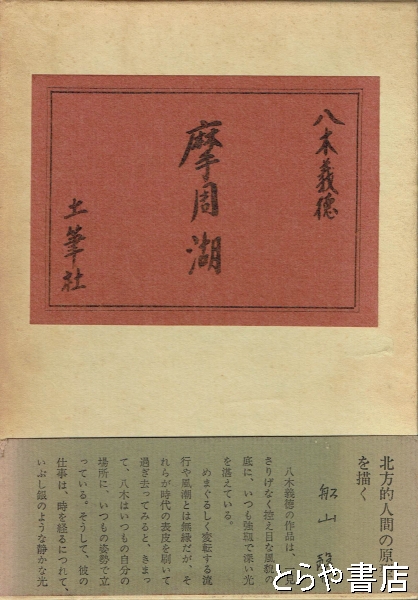 八木義徳
摩周湖
土筆社
北方的人間の原
を描く
船山
八木義徳の作品は、
さりげなく控え目な風貌
底に、いつも強靱で深い光
を湛えている。
めまぐるしく変転する流
行や風潮とは無縁だが、そ
れらが時代の表皮を剝いで
過ぎ去ってみると、きまっ
て、八木はいつもの自分の
場所に、いつもの姿勢で立
っている。そうして、彼の
仕事は、時を経るにつれて、
いぶし銀のような静かな光
とらや書店